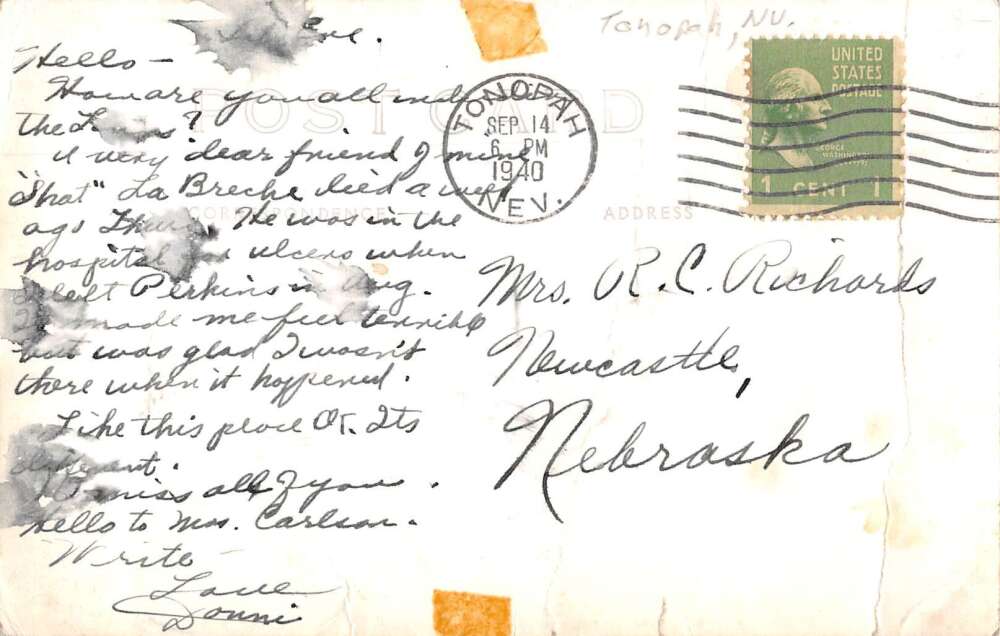 Tonopah, NV.
Eve.
Hello -
How are you all and
the
A very dear friend of mine
"Shot" La Breche died a week
ago Thurs. He was in the
hospital for ulcers when
I left Perkins in Aug.
made me feel terrible
but was glad I wasn't
there when it happened.
Like this place OK. Its
different.
Do miss all of you.
Hello to Mrs. Carlson.
Write
Love
Donni
POST CARD
CORRESPONDENCE
ADDRESS
TONOPAH
SEP 14
6 PM
1940
NEV.
UNITED
STATES
POSTAGE
GEORGE
WASHINGTON
1 CENT 1
Mrs. R. C. Richards
Newcastle,
Nebraska